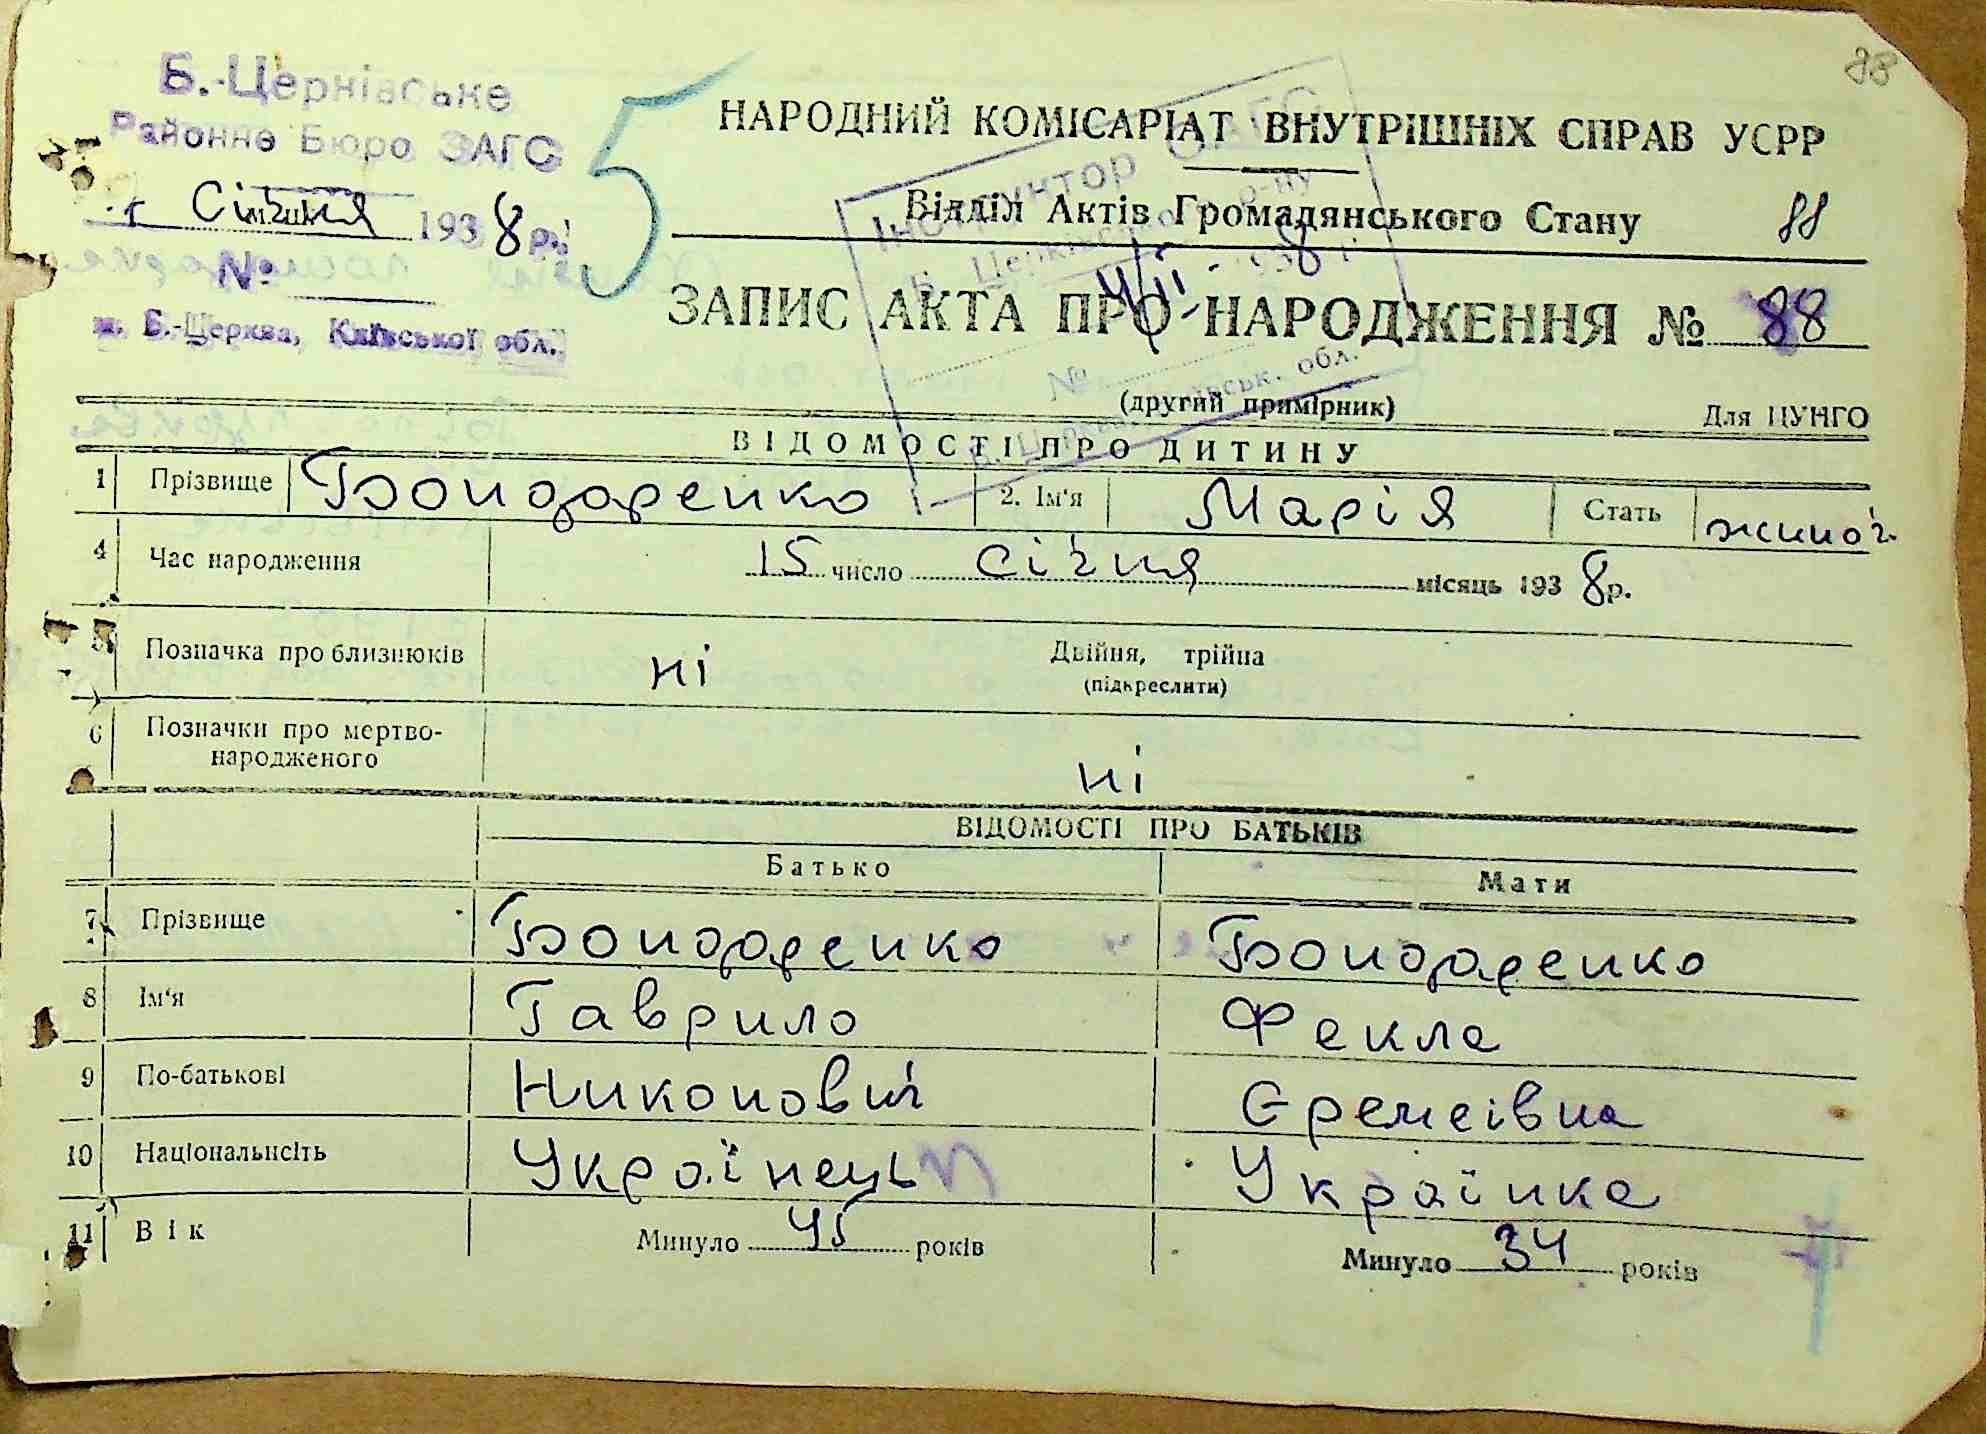 88
Б.-Церківське
Районне Бюро ЗАГС
Січня 1938 р.
№
м. Б.-Церква, Київської обл.
5
НАРОДНИЙ КОМІСАРІАТ ВНУТРІШНІХ СПРАВ УСРР
Відділ Актів Громадянського Стану 88
ЗАПИС АКТА ПРО НАРОДЖЕННЯ № 88
(другий примірник) Для ЦУНГО
Інструктор
Б. Церківського р-ну
193 8 р.
№
Б. Церква, Київськ. обл.
ВІДОМОСТІ ПРО ДИТИНУ
1 Прізвище Бондаренко 2. Ім'я Марія Стать жіноч.
4 Час народження 15 число січня місяць 1938 р.
5 Позначка про близнюків ні Двійня, трійна
(підкреслити)
6 Позначки про мертво-
народженого ні
ВІДОМОСТІ ПРО БАТЬКІВ
Батько Мати
7 Прізвище Бондаренко Бондаренко
8 Ім'я Гаврило Фекла
9 По-батькові Никонович Єремеівна
10 Національність Українець Українка
11 Вік Минуло 45 років Минуло 34 років